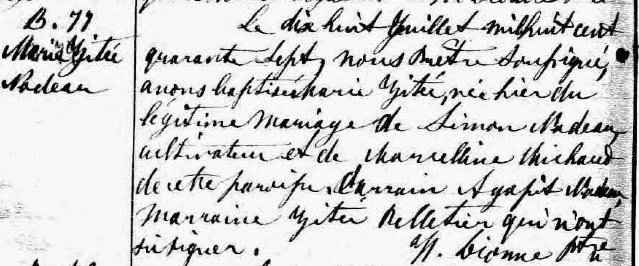 B. 77
Marie Zitée
Nadeau
Le dix huit Juillet mil huit cent
quarante Sept, nous Prêtre Soussigné,
avons baptisé Marie Zitée, née hier du
légitime Mariage de Simon Nadeau,
cultivateur et de Marcelline Michaud
de cette paroisse. Parrain Agapit Nadeau,
Marraine Zitée Pelletier qui n'ont
su signer.
Dionne Ptre